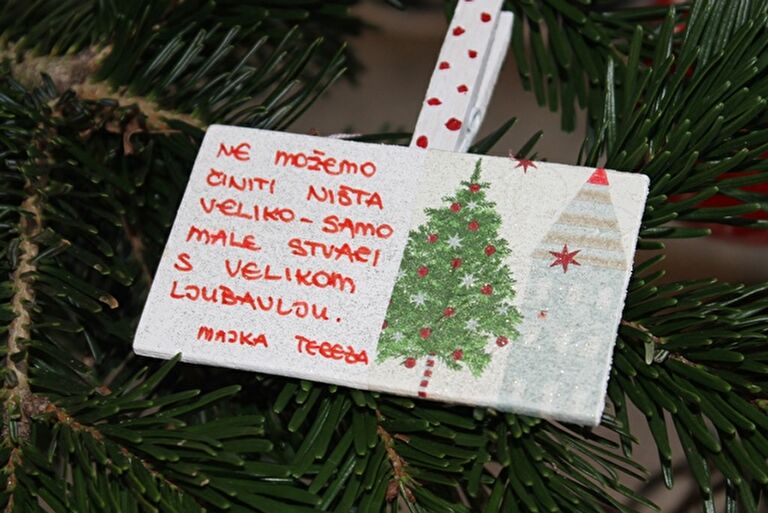 NE MOŽEMO
ČINITI NIŠTA
VELIKO - SAMO
MALE STVARI
S VELIKOM
LJUBAVLJU.
MAJKA TEREZA